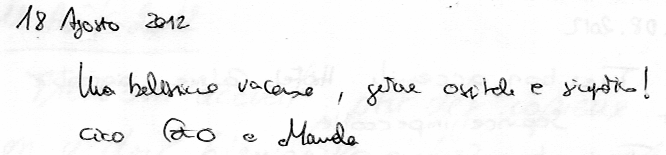 18 Agosto 2012
Una bellissima vacanza, gente ospitale e simpatica!
ciao e Manda